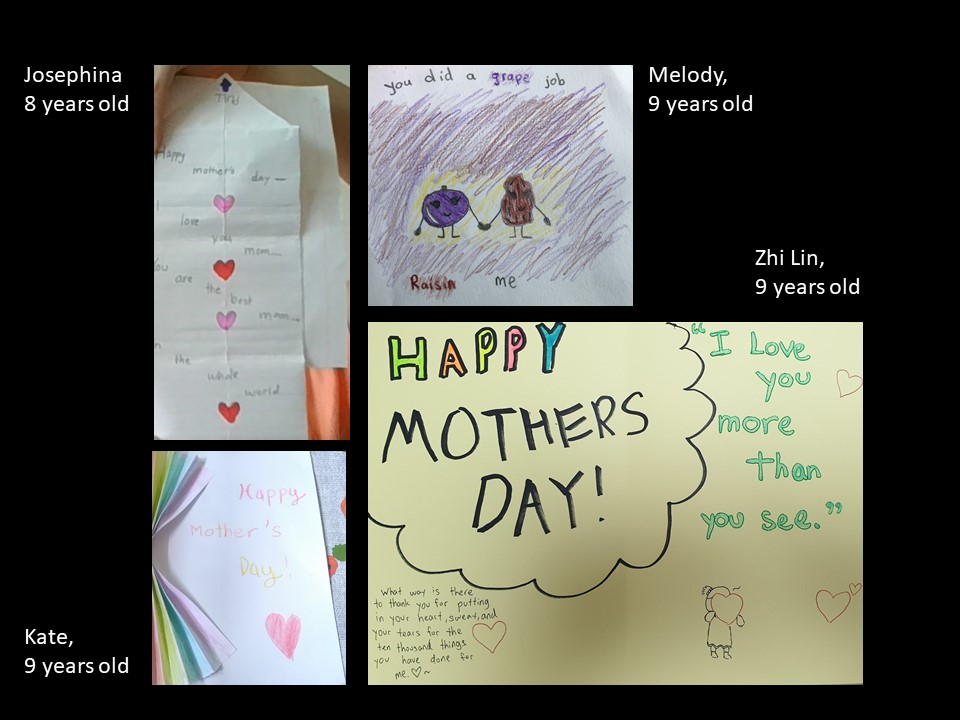 Josephina
8 years old
Happy
mother's
day
I
love
you
mom...
You
are
the
best
mom...
in
the
whole
world...
you did a grape job
Raisin me
Melody,
9 years old
Zhi Lin,
9 years old
HAPPY
MOTHERS
DAY!
"I Love
you
more
than
you see."
What way is there
to thank you for putting
in your heart, sweat, and
your tears for the
ten thousand things
you have done for
me.♡~
Happy
Mother's
Day!
Kate,
9 years old